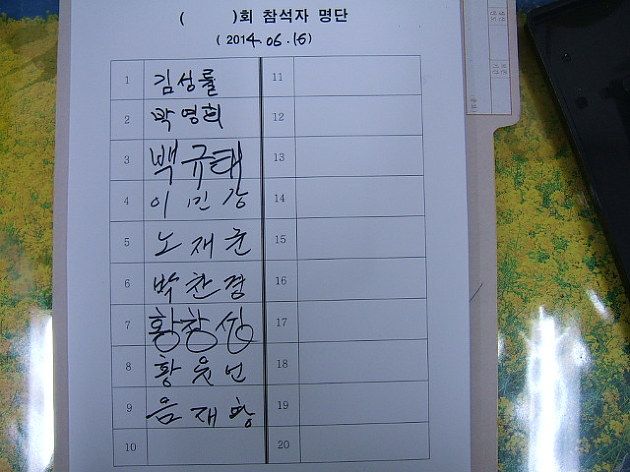 ( )회 참석자 명단
(2014.06.16)
1 김성률 11
2 박영희 12
3 백규태 13
4 이민강 14
5 노재균 15
6 박찬경 16
7 황창성 17
8 황 18
9 음재항 19
10 20